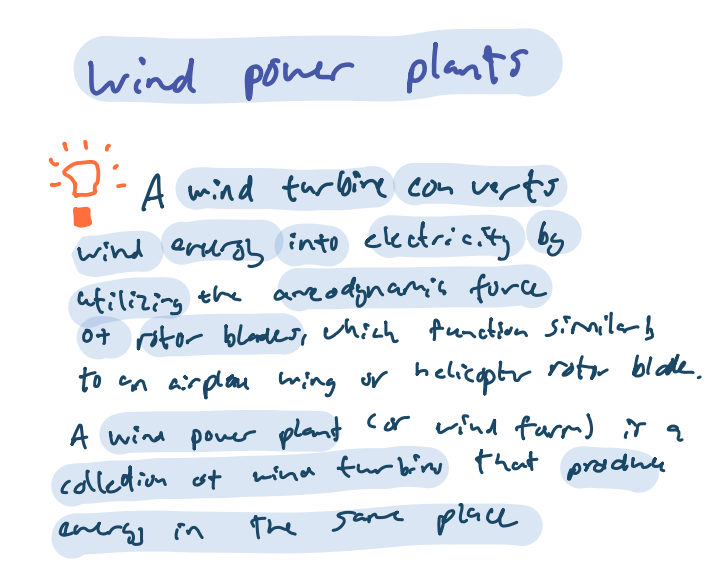 wind power plants
A wind turbine converts
wind energy into electricity by
utilizing the areodynamic force
of rotor blades, which function similarly
to an airplane wing or helicopter rotor blade.
A wind power plant (or wind farm) is a
collection of wind turbines that produce
energy in the same place